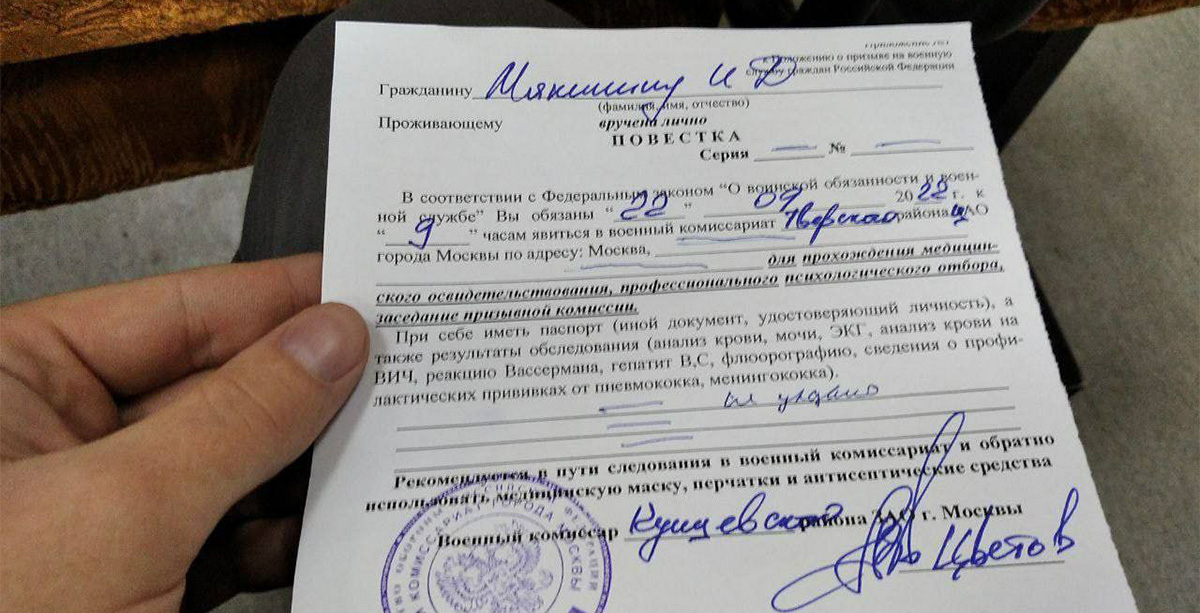 к Положению о призыве на военную
службу граждан Российской Федерации
Гражданину Мякишину И Д
(фамилия, имя, отчество)
Проживающему вручена лично
ПОВЕСТКА
Серия № 
В соответствии с Федеральным законом “О воинской обязанности и воен-
ной службе” Вы обязаны “22” 09 2022 г. к
“9” часам явиться в военный комиссариат Тверского района ЦАО
города Москвы по адресу: Москва,
для прохождения медицин-
ского освидетельствования, профессионального психологического отбора,
заседание призывной комиссии.
При себе иметь паспорт (иной документ, удостоверяющий личность), а
также результаты обследования (анализ крови, мочи, ЭКГ, анализ крови на
ВИЧ, реакцию Вассермана, гепатит В,С, флюорографию, сведения о профи-
лактических прививках от пневмококка, менингококка).
Рекомендуется в пути следования в военный комиссариат и обратно
использовать медицинскую маску, перчатки и антисептические средства
Военный комиссар района ЗАО г. Москвы
Цветов
КОМИССАРИАТ ГОРОДА МОСКВЫ